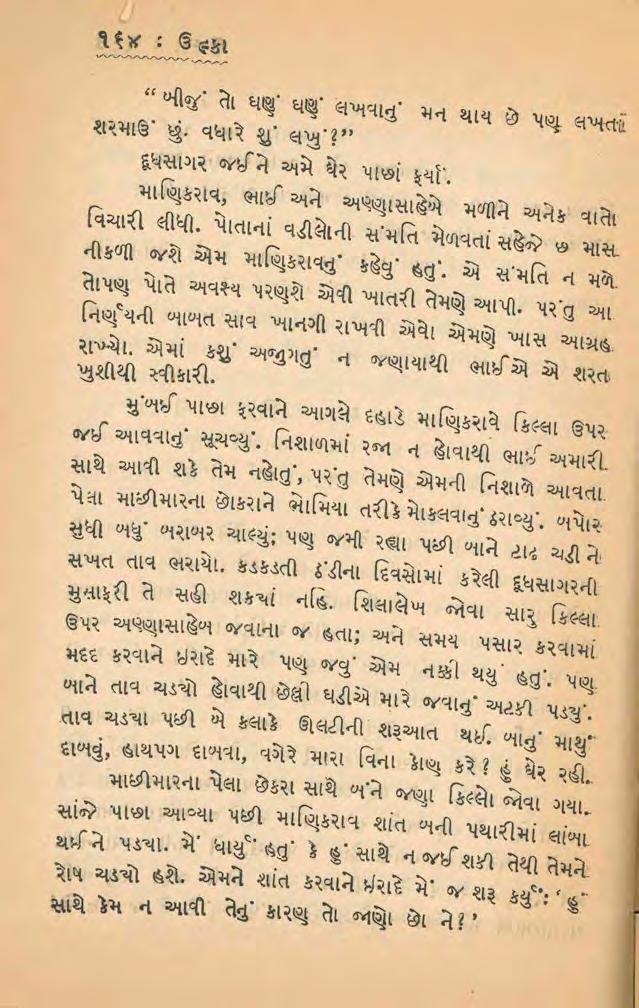 ૧૬૪ : ઉલ્કા
“બીજું તો ઘણું ઘણું લખવાનું મન થાય છે પણ લખતાં
શરમાઉં છું. વધારે શું લખું?”
દૂધસાગર જઈને અમે ઘેર પાછાં ફર્યાં.
માણિકરાવ, ભાઈ અને અણ્ણાસાહેબે મળીને અનેક વાતો
વિચારી લીધી. પોતાનાં વડીલોની સંમતિ મેળવતાં સહેજે છ માસ
નીકળી જશે એમ માણિકરાવનું કહેવું હતું. એ સંમતિ ન મળે
તોપણ પોતે અવશ્ય પરણશે એવી ખાતરી તેમણે આપી. પરંતુ આ
નિર્ણયની બાબત સાવ ખાનગી રાખવી એવો એમણે ખાસ આગ્રહ
રાખ્યો. એમાં કશું અજુગતું ન જણાયાથી ભાઈએ એ શરત
ખુશીથી સ્વીકારી.
મુંબઈ પાછા ફરવાને આગલે દહાડે માણિકરાવે કિલ્લા ઉપર
જઈ આવવાનું સૂચવ્યું. નિશાળમાં રજા ન હોવાથી ભાઈ અમારી
સાથે આવી શકે તેમ નહોતું, પરંતુ તેમણે એમની નિશાળે આવતા
પેલા માછીમારના છોકરાને ભોમિયા તરીકે મોકલવાનું ઠરાવ્યું. બપોર
સુધી બધું બરાબર ચાલ્યું; પણ જમી રહ્યા પછી બાને ટાઢ ચડીને
સખત તાવ ભરાયો. કડકડતી ઠંડીના દિવસોમાં કરેલી દૂધસાગરની
મુસાફરી તે સહી શક્યાં નહિ. શિલાલેખ જોવા સારુ કિલ્લા
ઉપર અણ્ણાસાહેબ જવાના જ હતા; અને સમય પસાર કરવામાં
મદદ કરવાને ઇરાદે મારે પણ જવું એમ નક્કી થયું હતું. પણ
બાને તાવ ચડ્યો હોવાથી છેલ્લી ઘડીએ મારે જવાનું અટકી પડ્યું.
તાવ ચડ્યા પછી બે કલાકે ઊલટીની શરૂઆત થઈ. બાનું માથું
દાબવું, હાથપગ દાબવા, વગેરે મારા વિના કોણ કરે? હું ઘેર રહી.
માછીમારના પેલા છેકરા સાથે બંને જણા કિલ્લો જોવા ગયા.
સાંજે પાછા આવ્યા પછી માણિકરાવ શાંત બની પથારીમાં લાંબા
થઈને પડ્યા. મેં ધાર્યું હતું કે હું સાથે ન જઈ શકી તેથી તેમને
રોષ ચડ્યો હશે. એમને શાંત કરવાને ઇરાદે મેં જ શરૂ કર્યું: ‘હું
સાથે કેમ ન આવી તેનું કારણ તો જાણો છો ને?’